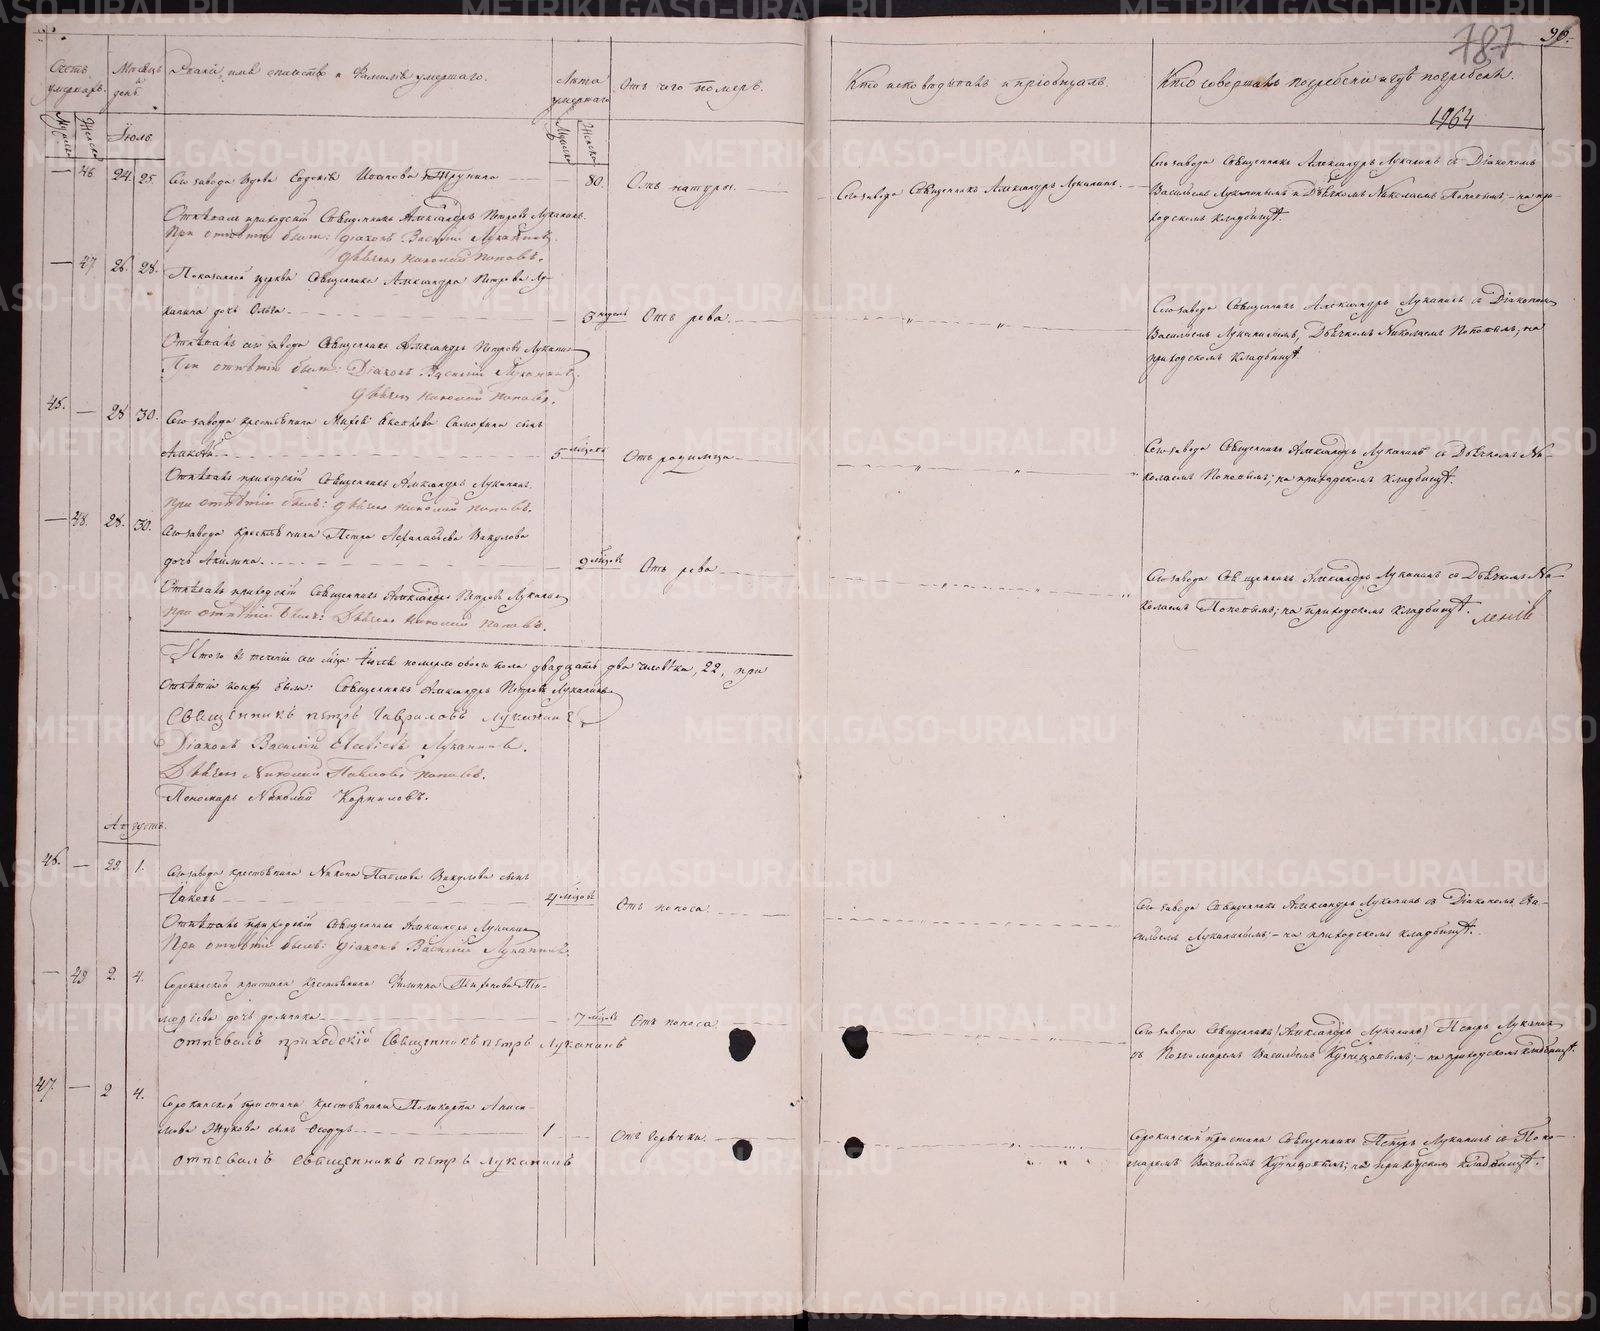 187
96.
Счетъ умершихъ.
Мѣсяцъ и день
Званіе, имя, отчество и фамилія умершаго.
Лѣта умершаго
Отъ чего померъ.
Кто исповѣдывалъ и пріобщалъ.
Кто совершалъ погребеніе и гдѣ погребенъ.
Мужеска
Женска
Іюль
Мужеска
Женска
1964
— 46. 24. 25. Сего завода вдова Іоапова Трунина 80. Отъ натуры. Сего завода Священникъ Александръ Луканинъ. Сего завода Священникъ Александръ Луканинъ съ Діакономъ
Василіемъ Луканинымъ и Дьячкомъ Николаемъ Поповымъ, на при-
ходскомъ кладбищѣ.
Отпѣвалъ приходскій Священникъ Александръ Петровъ Луканинъ.
При отпѣтіи были: діаконъ Василій Луканинъ,
дьячекъ Николай Поповъ.
— 47. 26. 28. Показанной церкви Священника Александра Петрова Лу-
канина дочь Ольга. 3 недѣль Отъ рева. Сего завода Священникъ Александръ Луканинъ съ Діакономъ
Василіемъ Луканинымъ, Дьячкомъ Николаемъ Поповымъ, на
приходскомъ кладбищѣ.
Отпѣвалъ сего завода Священникъ Александръ Петровъ Луканинъ
При отпѣтіи были: Діаконъ Василій Луканинъ,
дьячекъ Николай Поповъ.
45. — 28 30. Сего завода крестьянина сынъ
5 мѣсяцъ Отъ родимца Сего завода Священникъ Александръ Луканинъ съ Дьячкомъ Ни-
колаемъ Поповымъ; на приходскомъ кладбищѣ.
Отпѣвалъ приходскій Священникъ Александръ Луканинъ.
При отпѣтіи былъ: дьячекъ Николай Поповъ.
— 48. 28. 30. Сего завода крестьянина Петра Викулова
дочь Акилина. 2 мѣсяцъ Отъ рева Сего завода Священникъ Александръ Луканинъ съ Дьячкомъ Ни-
колаемъ Поповымъ; на приходскомъ кладбищѣ.
Отпѣвалъ приходскій Священникъ Александръ Петровъ Луканинъ
При отпѣтіи былъ: Дьячекъ Николай Поповъ.
Итого въ теченіи сего мѣсяца Іюля померло обоего пола двадцать два человѣка, 22, при
отпѣтіи коихъ были: Священникъ Александръ Петровъ Луканинъ
Священникъ Петръ Гавриловъ Луканинъ
Діаконъ Василій Луканинъ.
Дьячекъ Николай Павловъ Поповъ.
Пономарь Николай Корниловъ.
Августъ.
46. — 22. 1. Сего завода крестьянина Никона Павлова Викулова сынъ
Іаковъ 4 мѣсяцъ Отъ поноса Сего завода Священникъ Александръ Луканинъ съ Діакономъ Ва-
силіемъ Луканинымъ; на приходскомъ кладбищѣ.
Отпѣвалъ приходскій Священникъ Александръ Луканинъ
При отпѣтіи былъ: діаконъ Василій Луканинъ.
— 49 2. 4. Сорокинской пристани крестьянина Филиппа
дочь Домника 7 мѣсяцъ Отъ поноса. Сего завода Священникъ (Александръ Луканинъ) Петръ Луканинъ
съ Пономаремъ Василіемъ Кузнецовымъ; на приходскомъ кладбищѣ.
Отпевалъ приходскій Священникъ Петръ Луканинъ
47. — 2 4. Сорокинской пристани крестьянина Поликарпа Аниси-
мова Жукова сынъ Ѳеодоръ 1 Отъ горячки. Сорокинской пристани Священникъ Петръ Луканинъ съ Поно-
маремъ Василіемъ Кузнецовымъ; на приходскомъ кладбищѣ.
Отпевалъ Священникъ Петръ Луканинъ
METRIKI.GASO-URAL.RU